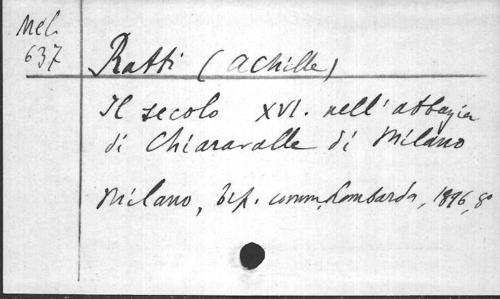 Mel.
637
Ratti (Achille)
Il secolo XVI. nell'abbazia
di Chiaravalle di Milano
Milano, tip. comm. Lombarda, 1896, 8°